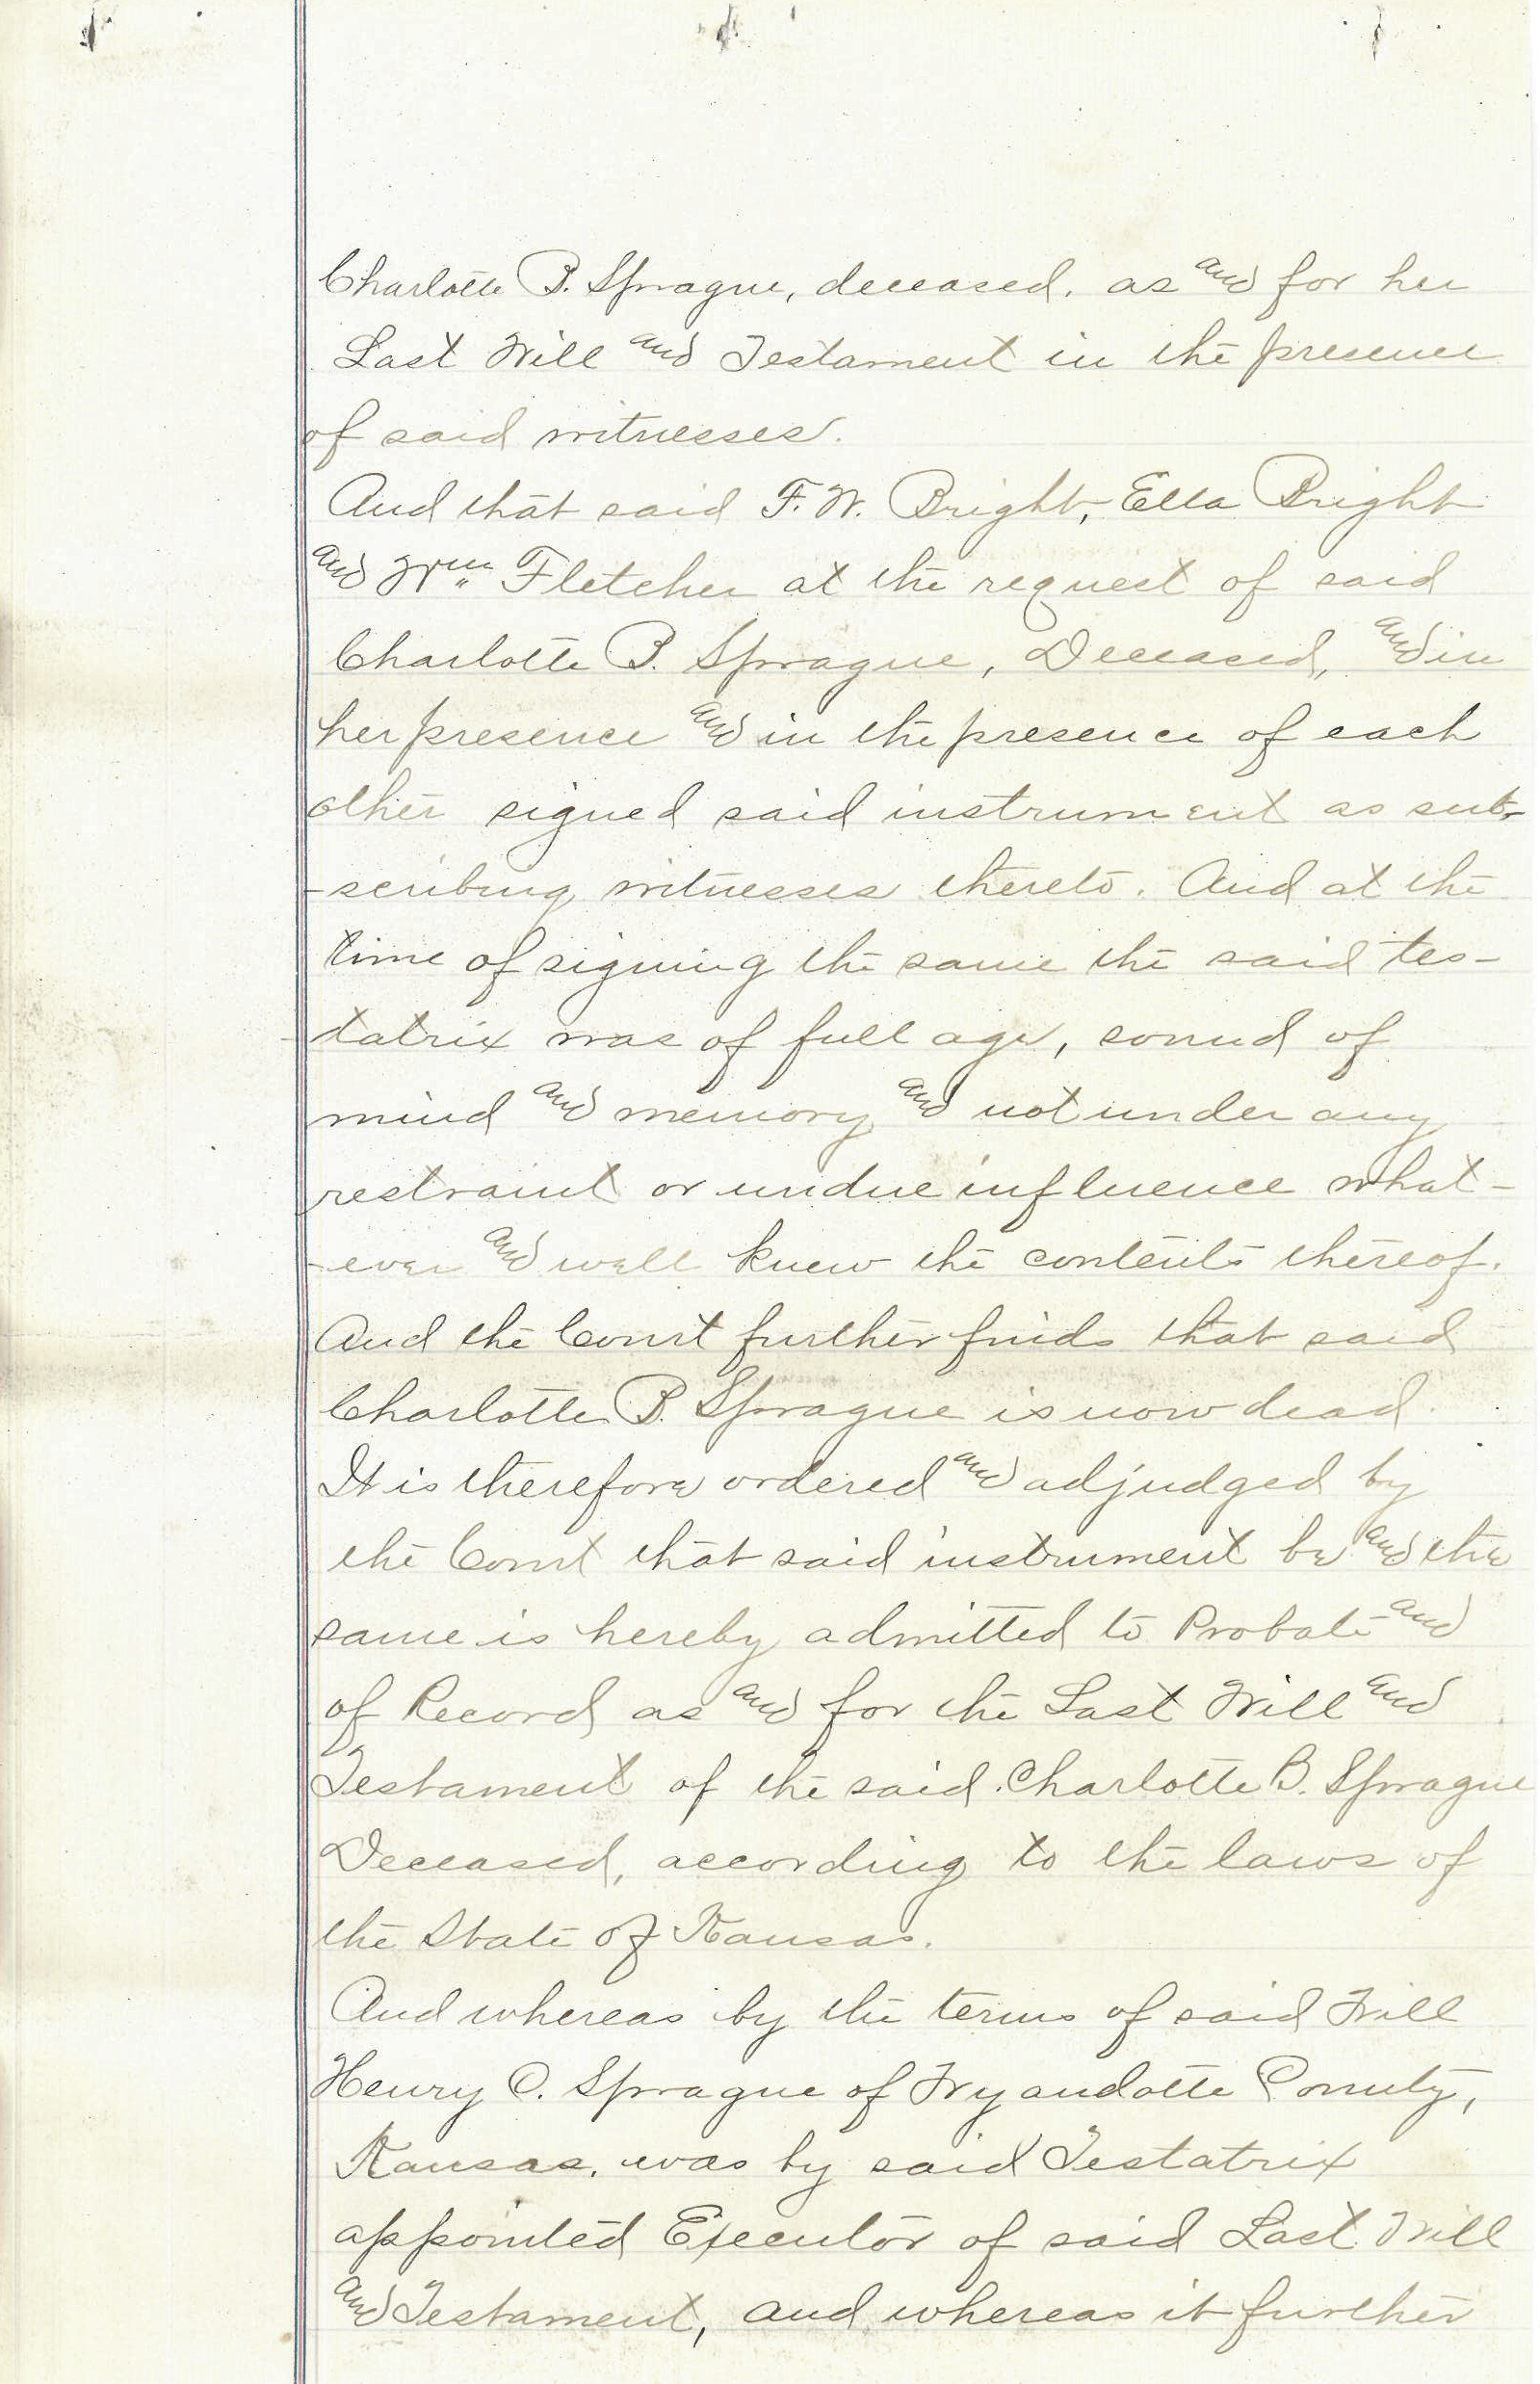 Charlotte B. Sprague, deceased, as and for her
Last Will and Testament in the presence
of said witnesses.
And that said F. W. Bright, Ella Bright
and Wm Fletcher at the request of said
Charlotte B. Sprague, Deceased, and in
her presence and in the presence of each
other signed said instrument as sub-
-scribing witnesses thereto. And at the
time of signing the same the said tes-
tatrix was of full age, sound of
mind and memory and not under any
restraint or undue influence what-
-ever and well knew the contents thereof.
And the Court further finds that said
Charlotte B. Sprague is now dead.
It is therefore ordered and adjudged by
the Court that said instrument be and the
same is hereby admitted to Probate and
of Record as and for the Last Will and
Testament of the said Charlotte B. Sprague
Deceased, according to the laws of
the State of Kansas.
And whereas by the terms of said Will
Henry C. Sprague of Wyandotte County,
Kansas, was by said Testatrix
appointed Executor of said Last Will
and Testament, and whereas it further